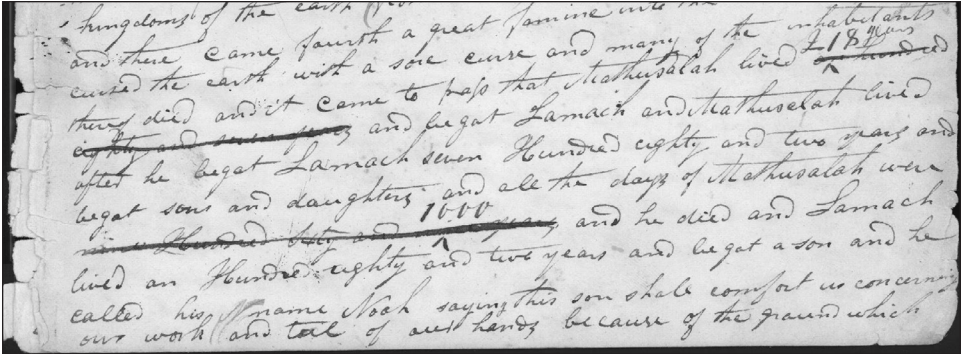 kingdoms of the earth
and there came fourth a great famine into the
cursed the earth with a sore curse and many of the inhabitants
218 years
thereof died and it came to pass that Mathusalah lived an hundred
eighty and seven years and begat Lamach and Mathusalah lived
after he begat Lamach seven Hundred eighty and two years and
begat sons and daughters and all the days of Mathusalah were
1000
nine Hundred sixty and nine years and he died and Lamach
lived an Hundred eighty and two years and begat a son and he
called his name Noah saying this son shall comfort us concerning
our work and toil of our hands because of the ground which